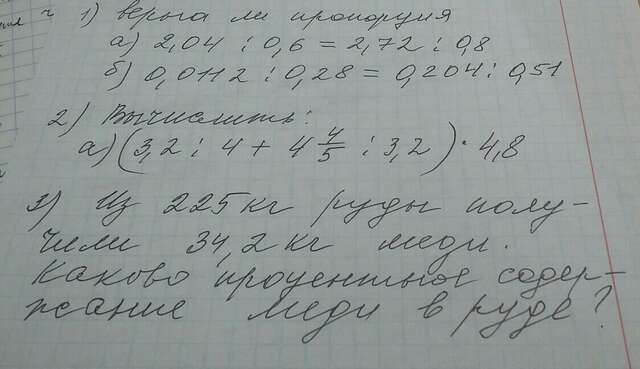 1) верна ли пропорция
а) 2,04 : 0,6 = 2,72 : 0,8
б) 0,0112 : 0,28 = 0,204 : 0,51
2) Вычислить:
а) (3,2 : 4 + 4 4/5 : 3,2) · 4,8
3) Из 225 кг руды полу-
чили 34,2 кг меди.
Каково процентное содер-
жание меди в руде?